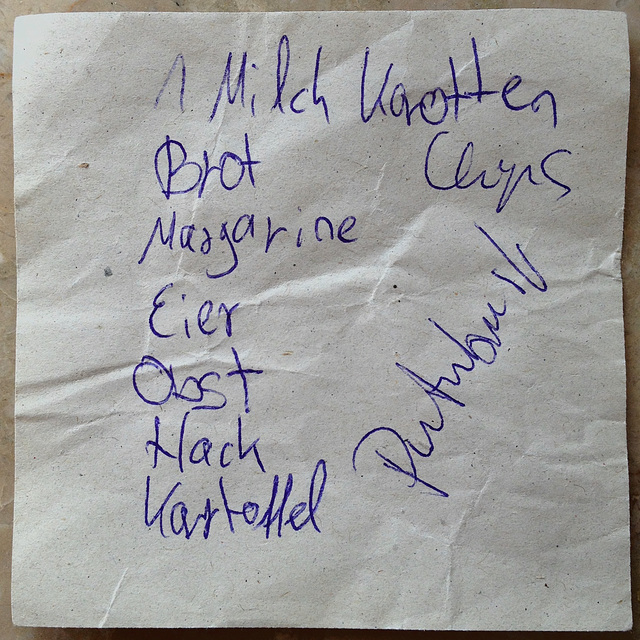 1 Milch Karotten
Brot Chips
Margarine
Eier
Obst
Hack
Kartoffel